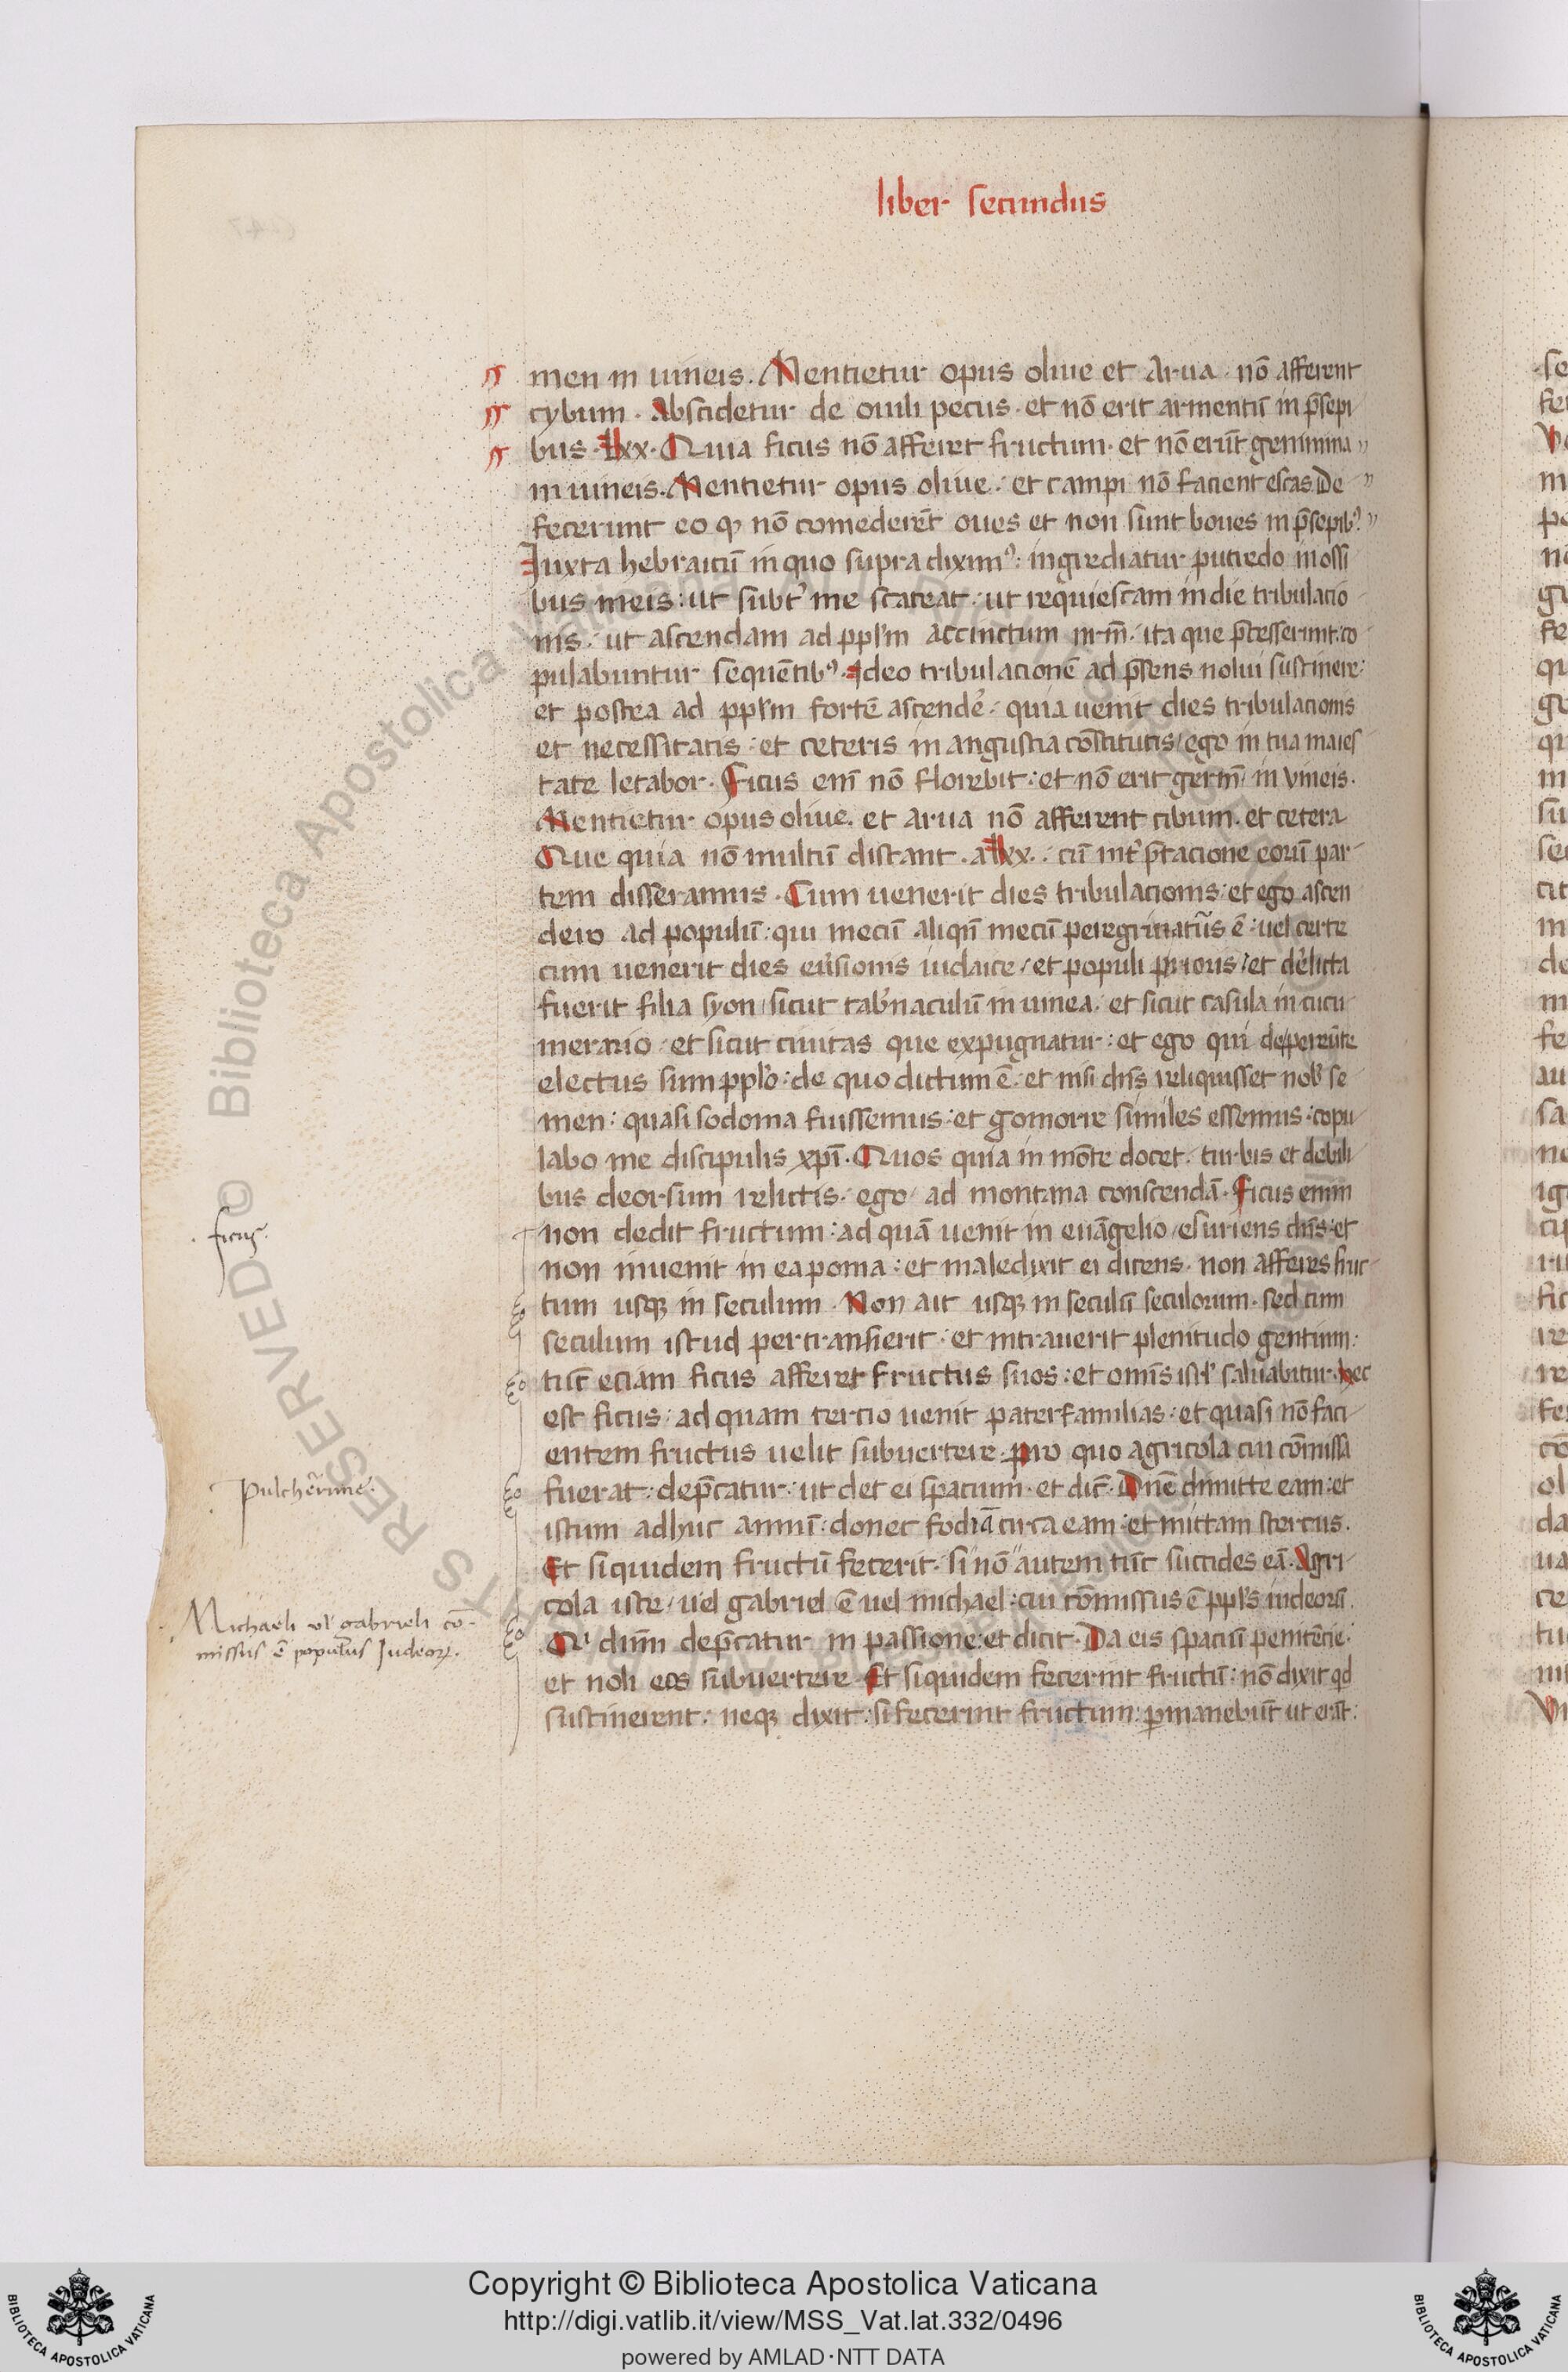 liber secundus
men in uineis. Mentietur opus oliue et arua. nō afferent
cybum. Abscidetur de ouili pecus. et nō erit armentū in p̄sepi
bus. lxx. Quia ficus nō afferet fructum. et nō erūt genimina
in uineis. Mentietur opus oliue. et campi nō facient escas De
fecerunt eo q nō comederēt oues et non sunt boues in p̄sepibꝰ.
Iuxta hebraicū in quo supra diximꝰ: ingrediatur putredo in ossi
bus meis: ut subt' me scateat. ut requiescam in die tribulacio
nis. ut ascendam ad ppl'm accinctum nr̄m. ita que p̄cesserunt: co
pulabuntur sequētibꝰ. Ideo tribulacionē ad p̄sens nolui sustinere:
et postea ad ppl'm fortē ascende'. quia uenit dies tribulacionis
et necessitatis: et ceteris in angustia cōstitutis/ ego in tua maies
tate letabor. Ficus enī nō florebit: et nō erit germ̄ in vineis.
Mentietur opus oliue. et arua nō afferent cibum. et cetera
Que quia nō multū distant. a lxx. cū int'p̄tacione eorū par
tem disseramus. Cum uenerit dies tribulacionis: et ego ascen
dero ad populū: qui mecū aliqn̄ mecū peregrinatus ē: uel certe
cum uenerit dies eu'sionis iudaice/ et populi prioris/ et de'licta
fuerit filia syon/ sicut tab'naculū in uinea. et sicut casula in cucu
merario. et sicut ciuitas que expugnatur: et ego qui de pereūte
electus sum ppl'o: de quo dictum ē. et nisi dn̄s reliquisset nob' se
men: quasi sodoma fuissemus: et gomorre similes essemus: copu
labo me discipulis xpī. Quos quia in mōte docet. turbis et debili
bus deorsum relictis. ego ad montana conscendā. Ficus enim
non dedit fructum: ad quā uenit in euāgelio/ esuriens dn̄s: et
non inuenit in ea poma: et maledixit ei dicens. non afferes fruc
tum usqꝫ in seculum. Non ait usqꝫ in seculū seculorum. sed cum
seculum istud pertransierit: et intrauerit plenitudo gentium:
tūc eciam ficus afferet fructus suos: et omīs isr'l saluabitur. hec
est ficus: ad quam tercio uenit paterfamilias: et quasi nō faci
entem fructus uelit subuertere. pro quo agricola cui cōmissa
fuerat: dep̄catur: ut det ei spacium. et dic̄. Dn̄e dimitte eam: et
istum adhuc annū: donec fodiā circa eam: et mittam stercus.
Et siquidem fructū fecerit. si nō autem tūc succides eā. Agri
cola iste/ uel gabriel ē uel michael: cui cōmissus ē ppl's iudeorū.
Q' dum̄ dep̄catur in passione: et dicit. Da eis spaciū penitēcie:
et noli eos subuertere. Et siquidem fecerint fructū: nō dixit qd
sustinerent: neqꝫ dixit: si fecerint fructum: pmanebūt ut erāt:
ficus.
Pulcherrime.
Michaeli vl' gabrieli cō-
missus ē populus Iudeorꝝ.
© Biblioteca Apostolica Vaticana
RESERVED
Copyright © Biblioteca Apostolica Vaticana
http://digi.vatlib.it/view/MSS_Vat.lat.332/0496
powered by AMLAD·NTT DATA
BIBLIOTECA APOSTOLICA VATICANA
BIBLIOTECA APOSTOLICA VATICANA